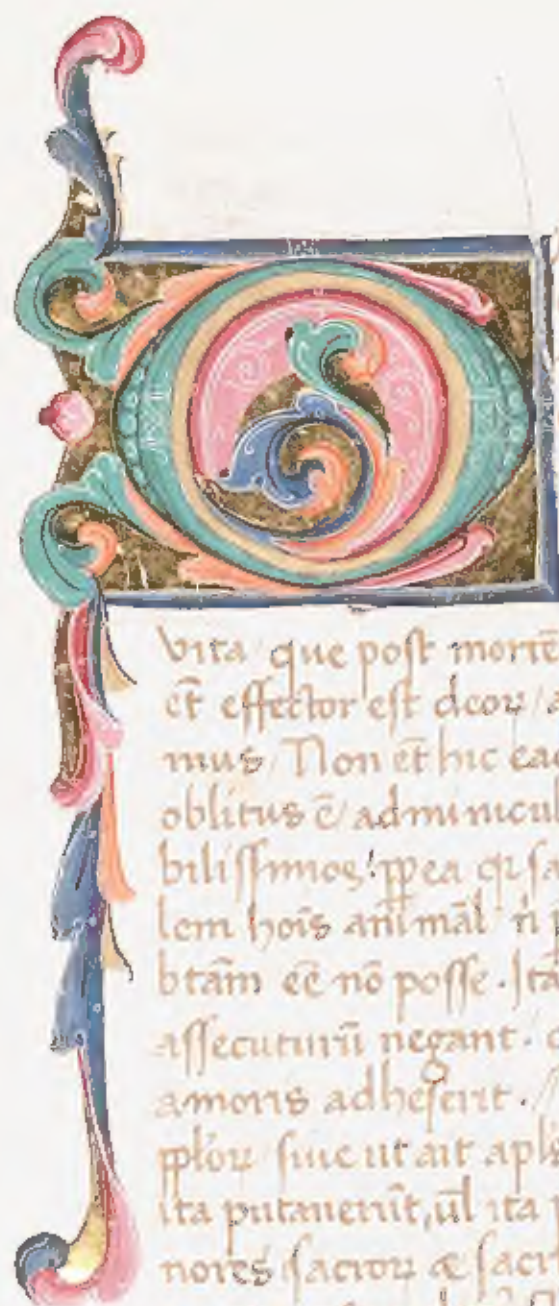 vita / que post mortē
et̄ effector est deoꝝ / a
mus / Non et̄ hic ead
oblitus ē / adminicu
bilissimos ! ꝓpea qꝛ sa
lem hoīs anīmāl n̄
btām eē nō posse . Itā
assecuturū negant .
amoris adheserit .
ꝓploꝝ siue ut ait apls
ita putauerūt , ul̄ ita p
nores sacroꝝ & sacri